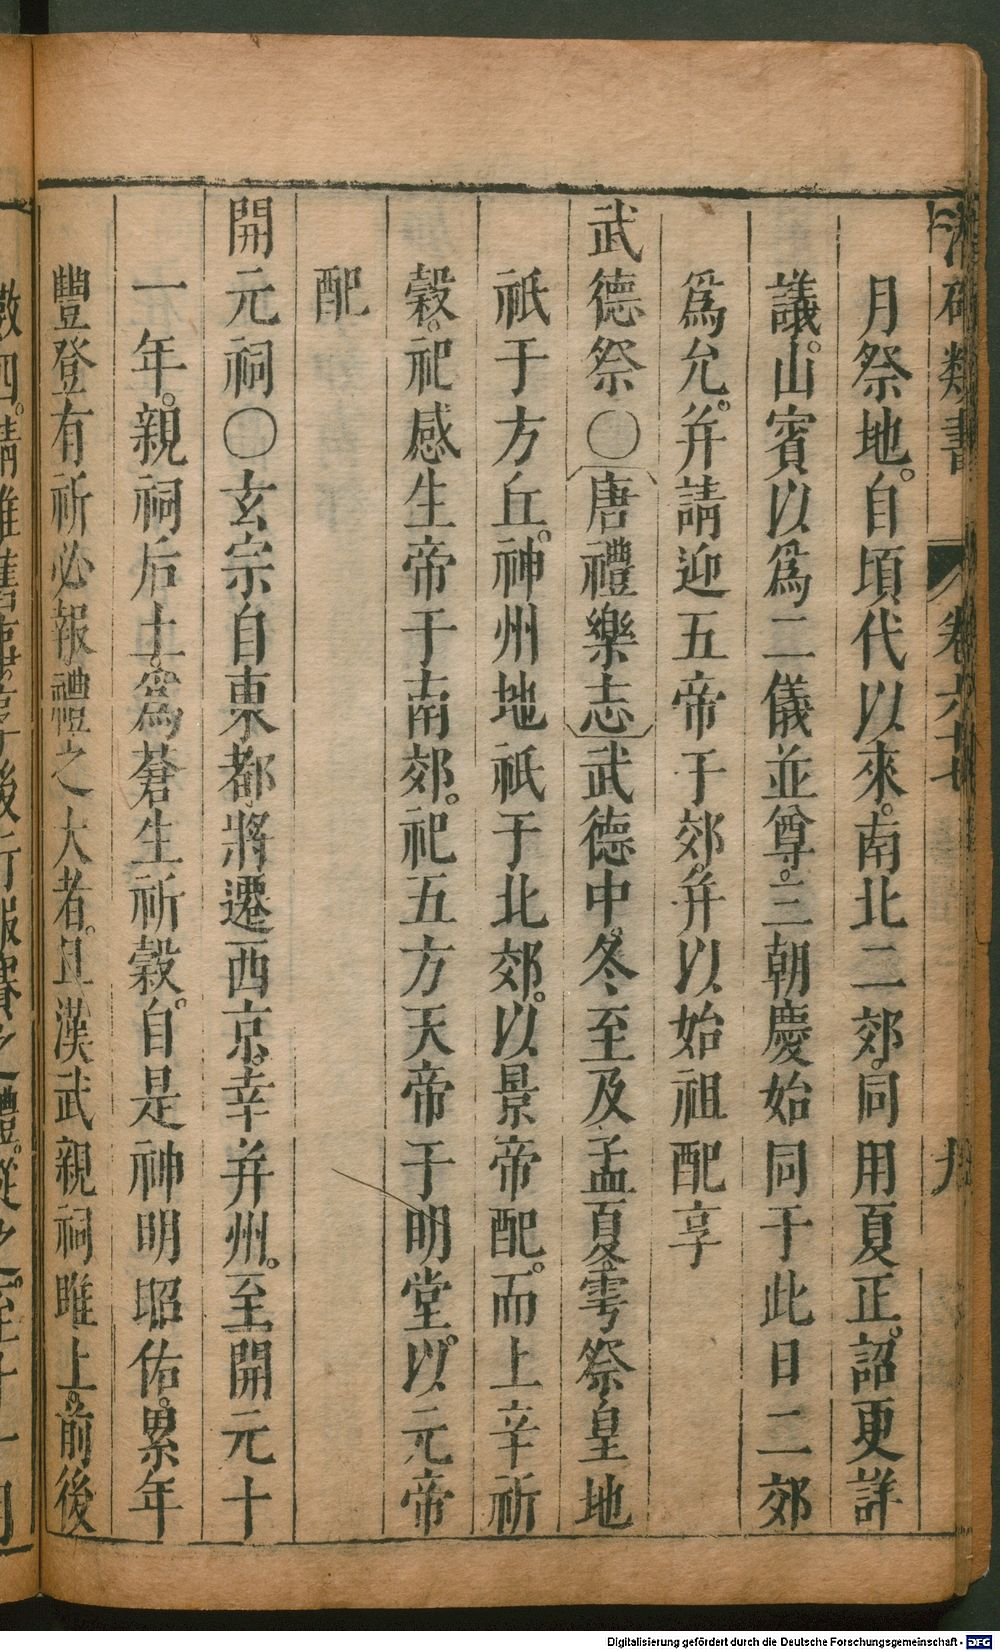 類書 卷六十七 九
月祭地。自頃代以來。南北二郊。同用夏正。詔更詳
議。山賓以爲二儀並尊。三朝慶始同于此日二郊
爲允。幷請迎五帝于郊。幷以始祖配享
武德祭〇唐禮樂志武德中。冬至及孟夏。雩祭皇地
祇于方丘。神州地祇于北郊。以景帝配。而上辛祈
穀。祀感生帝于南郊。祀五方天帝于明堂。以元帝
配
開元祠〇玄宗自東都將遷西京。幸并州。至開元十
一年。親祠后土。爲蒼生祈穀。自是神明昭佑。累年
豐登有祈必報禮之大者。且漢武親祠雎上。前後
Digitalisierung gefördert durch die Deutsche Forschungsgemeinschaft - DFG